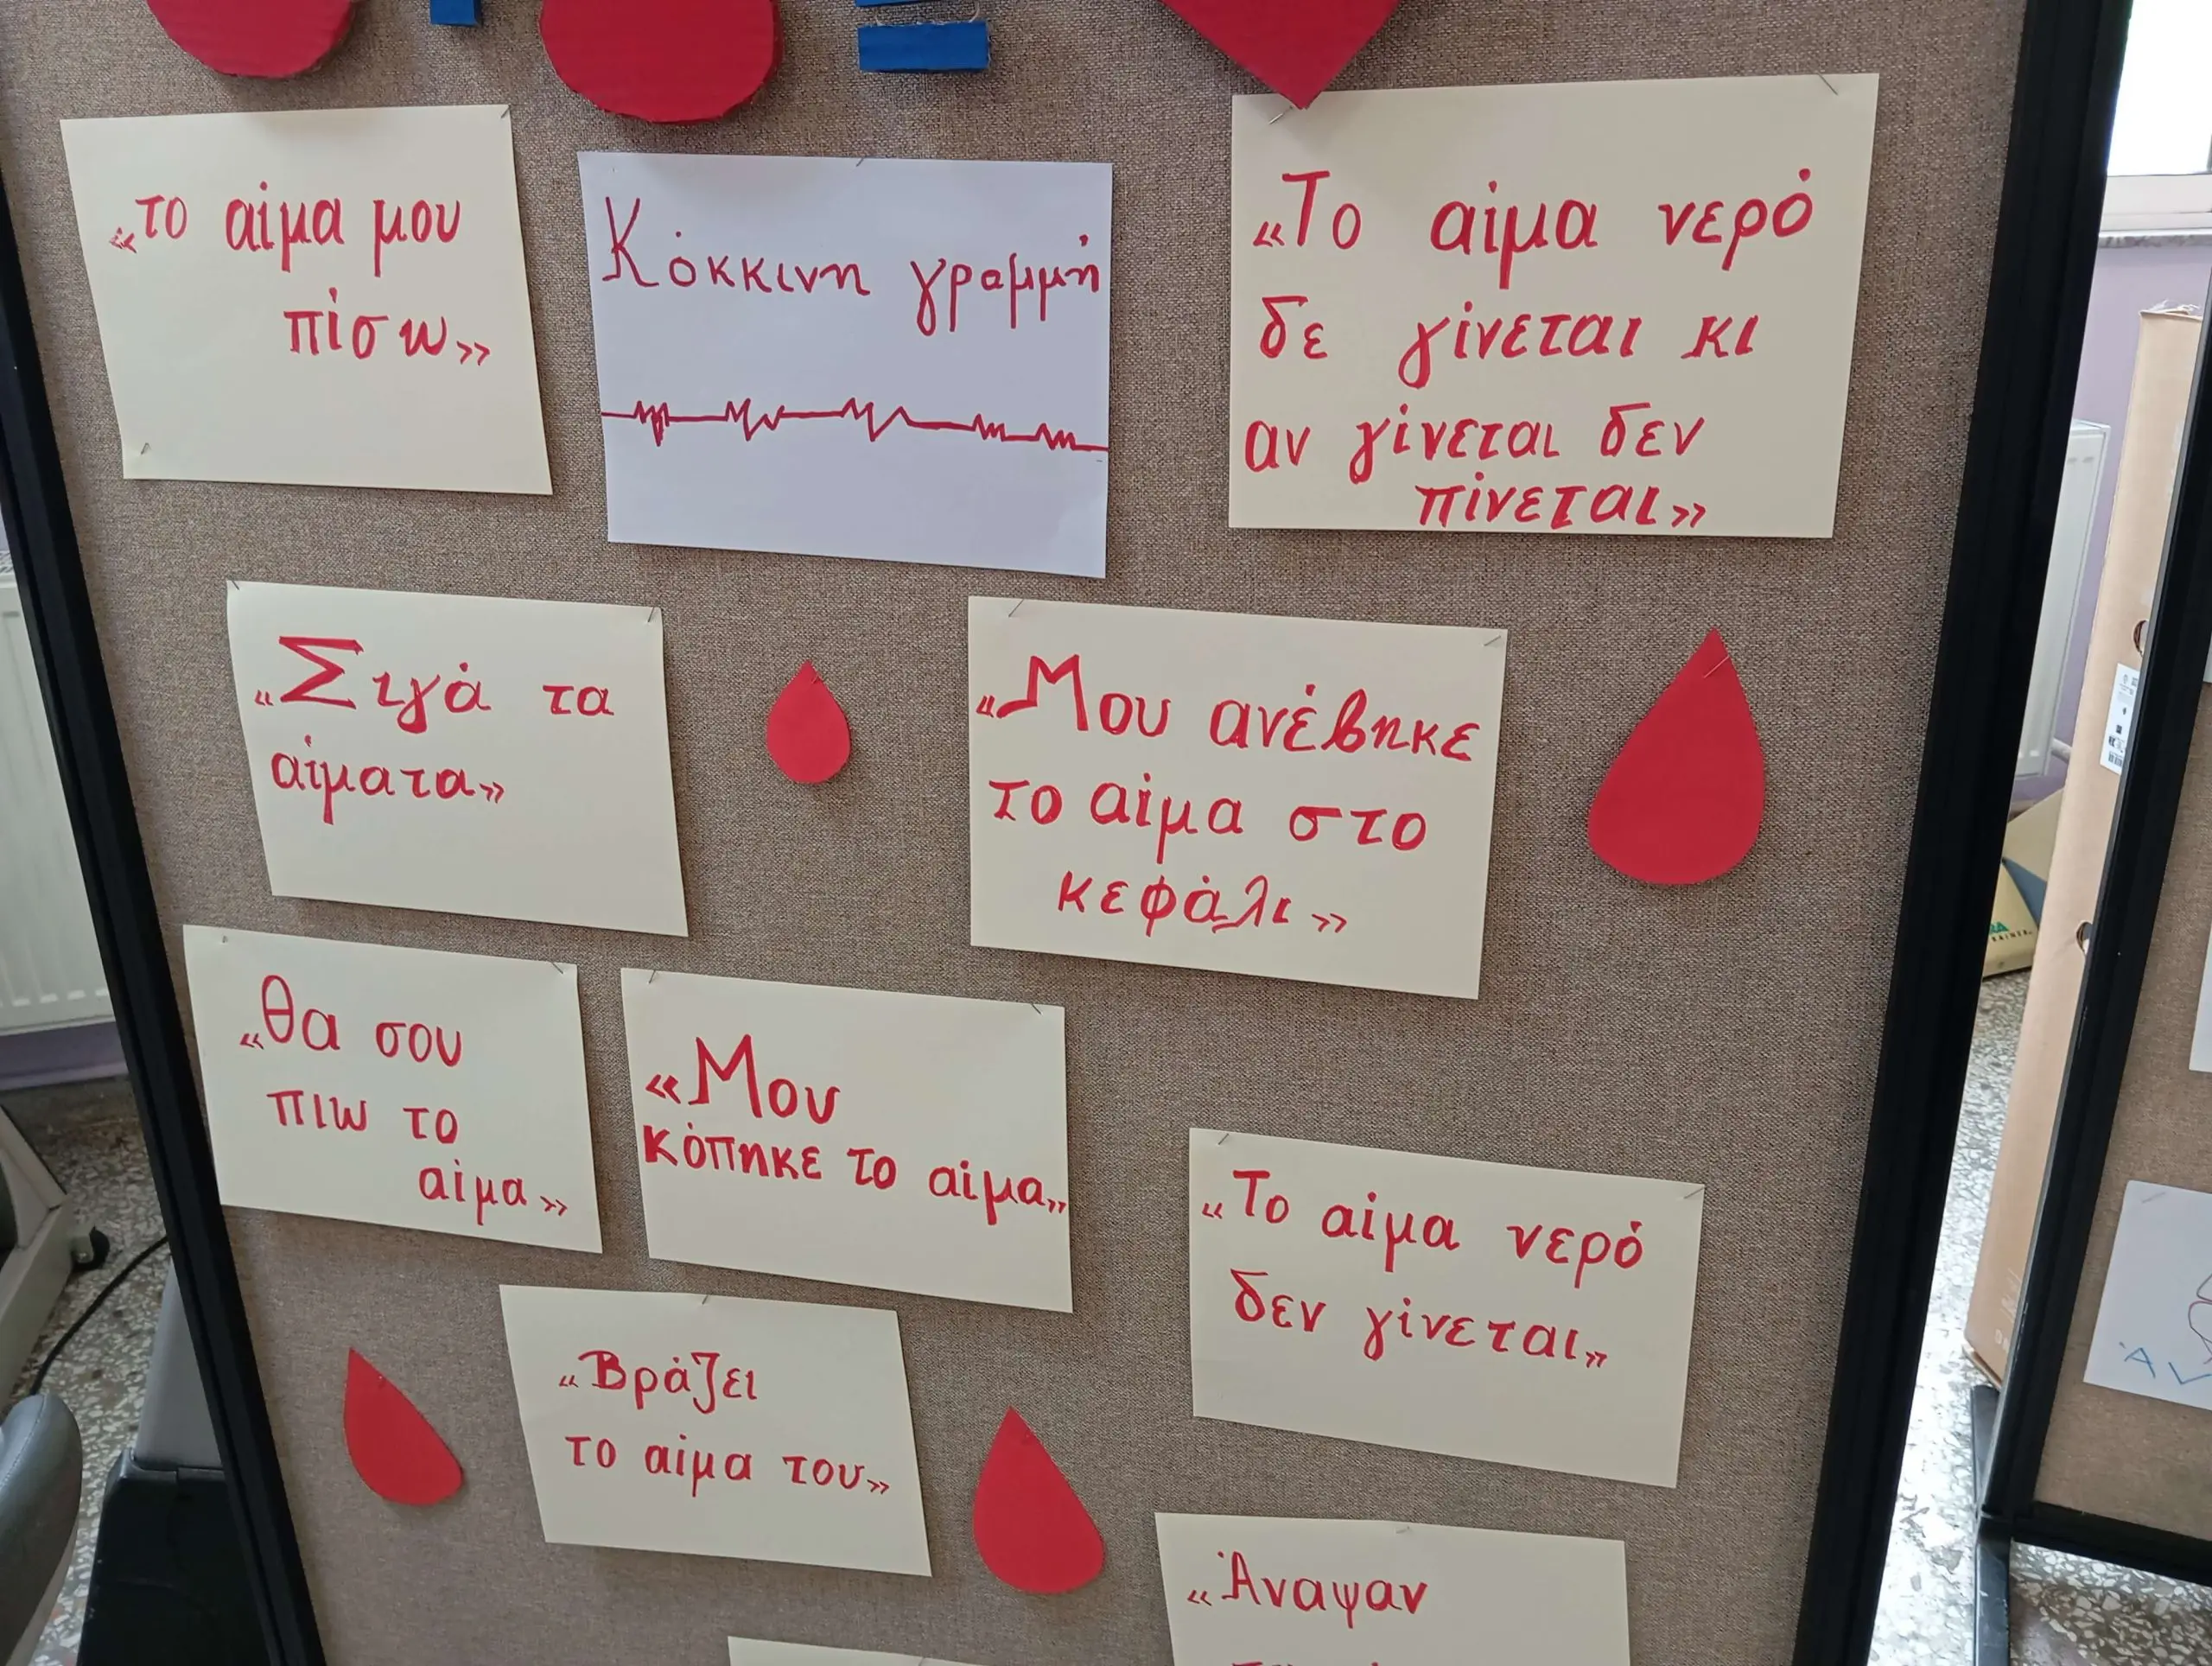 «το αίμα μου
πίσω»
Κόκκινη γραμμή
«Το αίμα νερό
δε γίνεται κι
αν γίνεται δεν
πίνεται»
«Σιγά τα
αίματα»
«Μου ανέβηκε
το αίμα στο
κεφάλι»
«Θα σου
πιω το
αίμα»
«Μου
κόπηκε το αίμα»
«Το αίμα νερό
δεν γίνεται»
«Βράζει
το αίμα του»
«Άναψαν